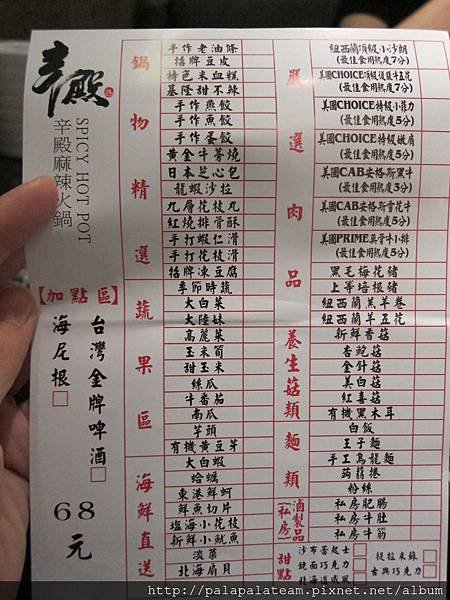 辛殿
辛殿麻辣火鍋
SPICY HOT POT
【加點區】
台灣金牌啤酒□
海尼根□
68元
鍋物精選
手作老油條
招牌豆皮
特色米血糕
基隆甜不辣
手作燕餃
手作魚餃
手作蛋餃
黃金牛蒡燒
日本芝心包
龍蝦沙拉
九層花枝丸
紅燒排骨酥
手打蝦仁滑
手打花枝滑
招牌凍豆腐
蔬果區
季節時蔬
大白菜
大陸妹
高麗菜
玉米筍
甜玉米
絲瓜
牛番茄
南瓜
芋頭
有機黃豆芽
海鮮直送
大白蝦
蛤蠣
東港鮮蚵
鮮魚切片
塩海小花枝
新鮮小魷魚
淡菜
北海扇貝
嚴選肉品
紐西蘭頂級小沙朗
(最佳食用熟度7分)
美國CHOICE頂級後腹牛五花
(最佳食用熟度7分)
美國CHOICE特級小菲力
(最佳食用熟度5分)
美國CHOICE特級嫩肩
(最佳食用熟度5分)
美國CAB安格斯黑牛
(最佳食用熟度5分)
美國CAB安格斯雪花牛
(最佳食用熟度5分)
美國PRIME無骨牛小排
(最佳食用熟度5分)
黑毛梅花豬
上等培根豬
紐西蘭羔羊卷
紐西蘭羊五花
養生菇類
新鮮香菇
杏鮑菇
金針菇
美白菇
紅喜菇
有機黑木耳
麵類
白飯
王子麵
手工烏龍麵
蒟蒻捲
粉絲
(私房)滷製品
私房肥腸
私房牛肚
私房牛筋
甜點
沙布蕾起士□
提拉米蘇□
鏡面巧克力□
古典巧克力□
北海道戚風□
http://palapalateam.pixnet.net/blog